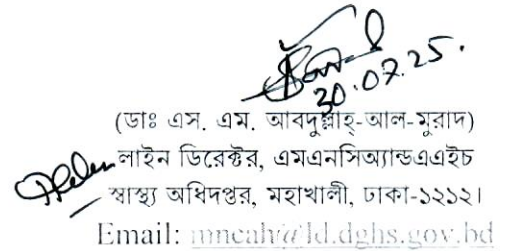 30.07.25.
(ডাঃ এস. এম. আবদুল্লাহ্-আল-মুরাদ)
লাইন ডিরেক্টর, এমএনসিঅ্যান্ডএএইচ
স্বাস্থ্য অধিদপ্তর, মহাখালী, ঢাকা-১২১২।
Email: mncah@ld.dghs.gov.bd